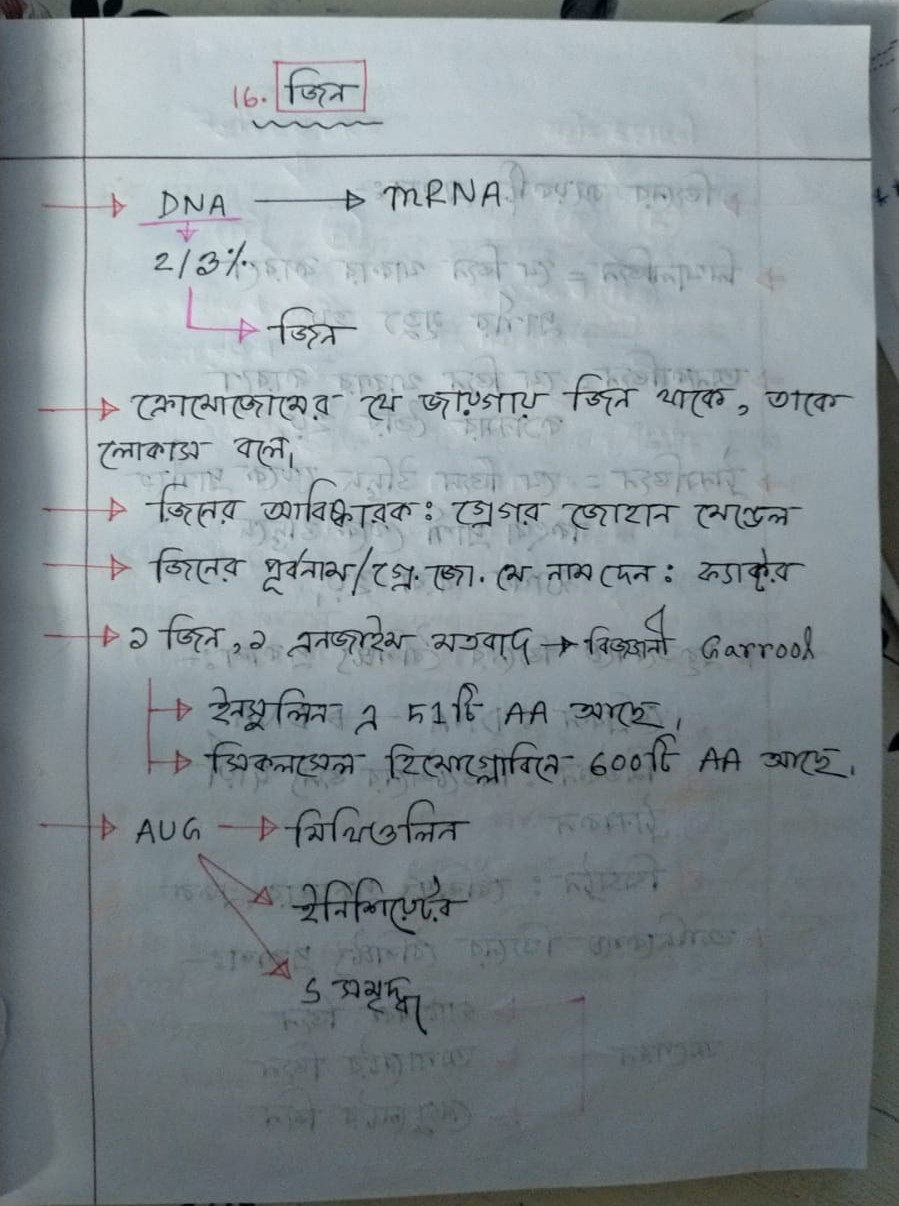 16. জিন
DNA → mRNA
2/3%
জিন
ক্রোমোজোমের যে জায়গায় জিন থাকে, তাকে
লোকাস বলে।
জিনের আবিষ্কারক: গ্রেগর জোহান মেন্ডেল
জিনের পূর্বনাম/গ্রে. জো. মে নাম দেন: ফ্যাক্টর
১ জিন, ১ এনজাইম মতবাদ → বিজ্ঞানী Garrod
ইনসুলিন এ 51টি AA আছে।
সিকলসেল হিমোগ্লোবিনে 600টি AA আছে।
AUG → মিথিওলিন
ইনিশিয়েটর
S সমৃদ্ধ